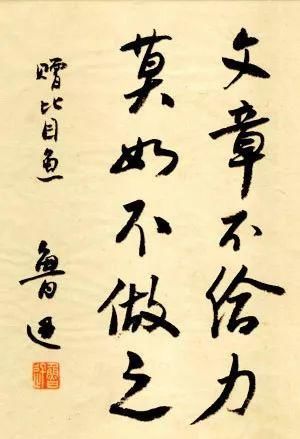 文章不给力
莫如不做之
赠比目鱼
鲁迅